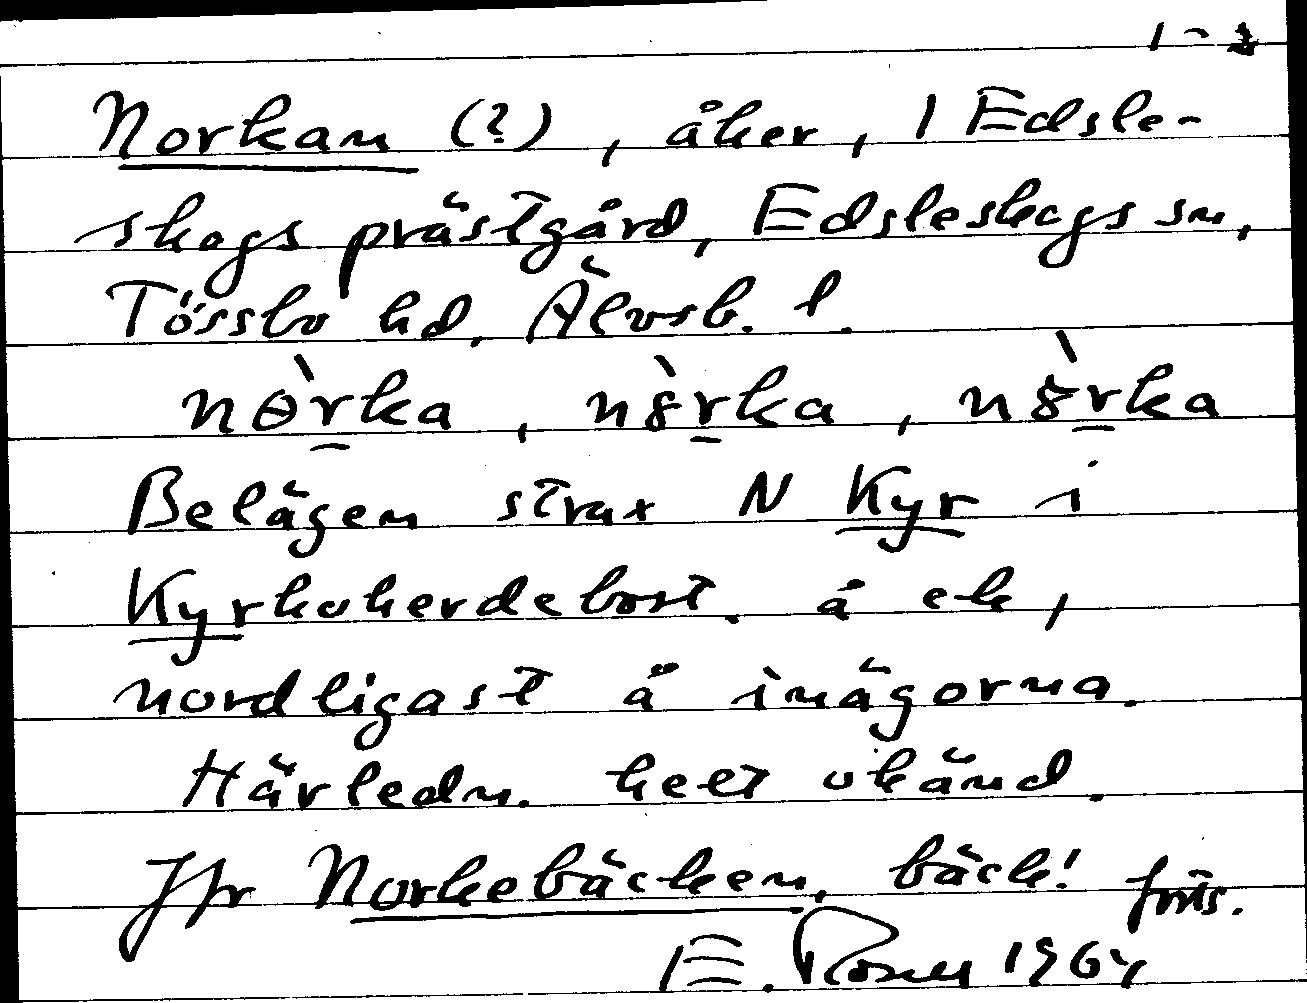 1-2
Norkan (?), åker, 1 Edsle-
skogs prästgård, Edsleskogs sn,
Tössbo hd, Älvsb. l.
nɵ̀rka, n8̀rka, n8̀rka
Belägen strax N Kyr i
Kyrkoherdebost. å ek,
nordligast å inägorna.
Härledn. helt okänd.
Jfr Norkebäcken, bäck! forts.
E. Rosell 1964